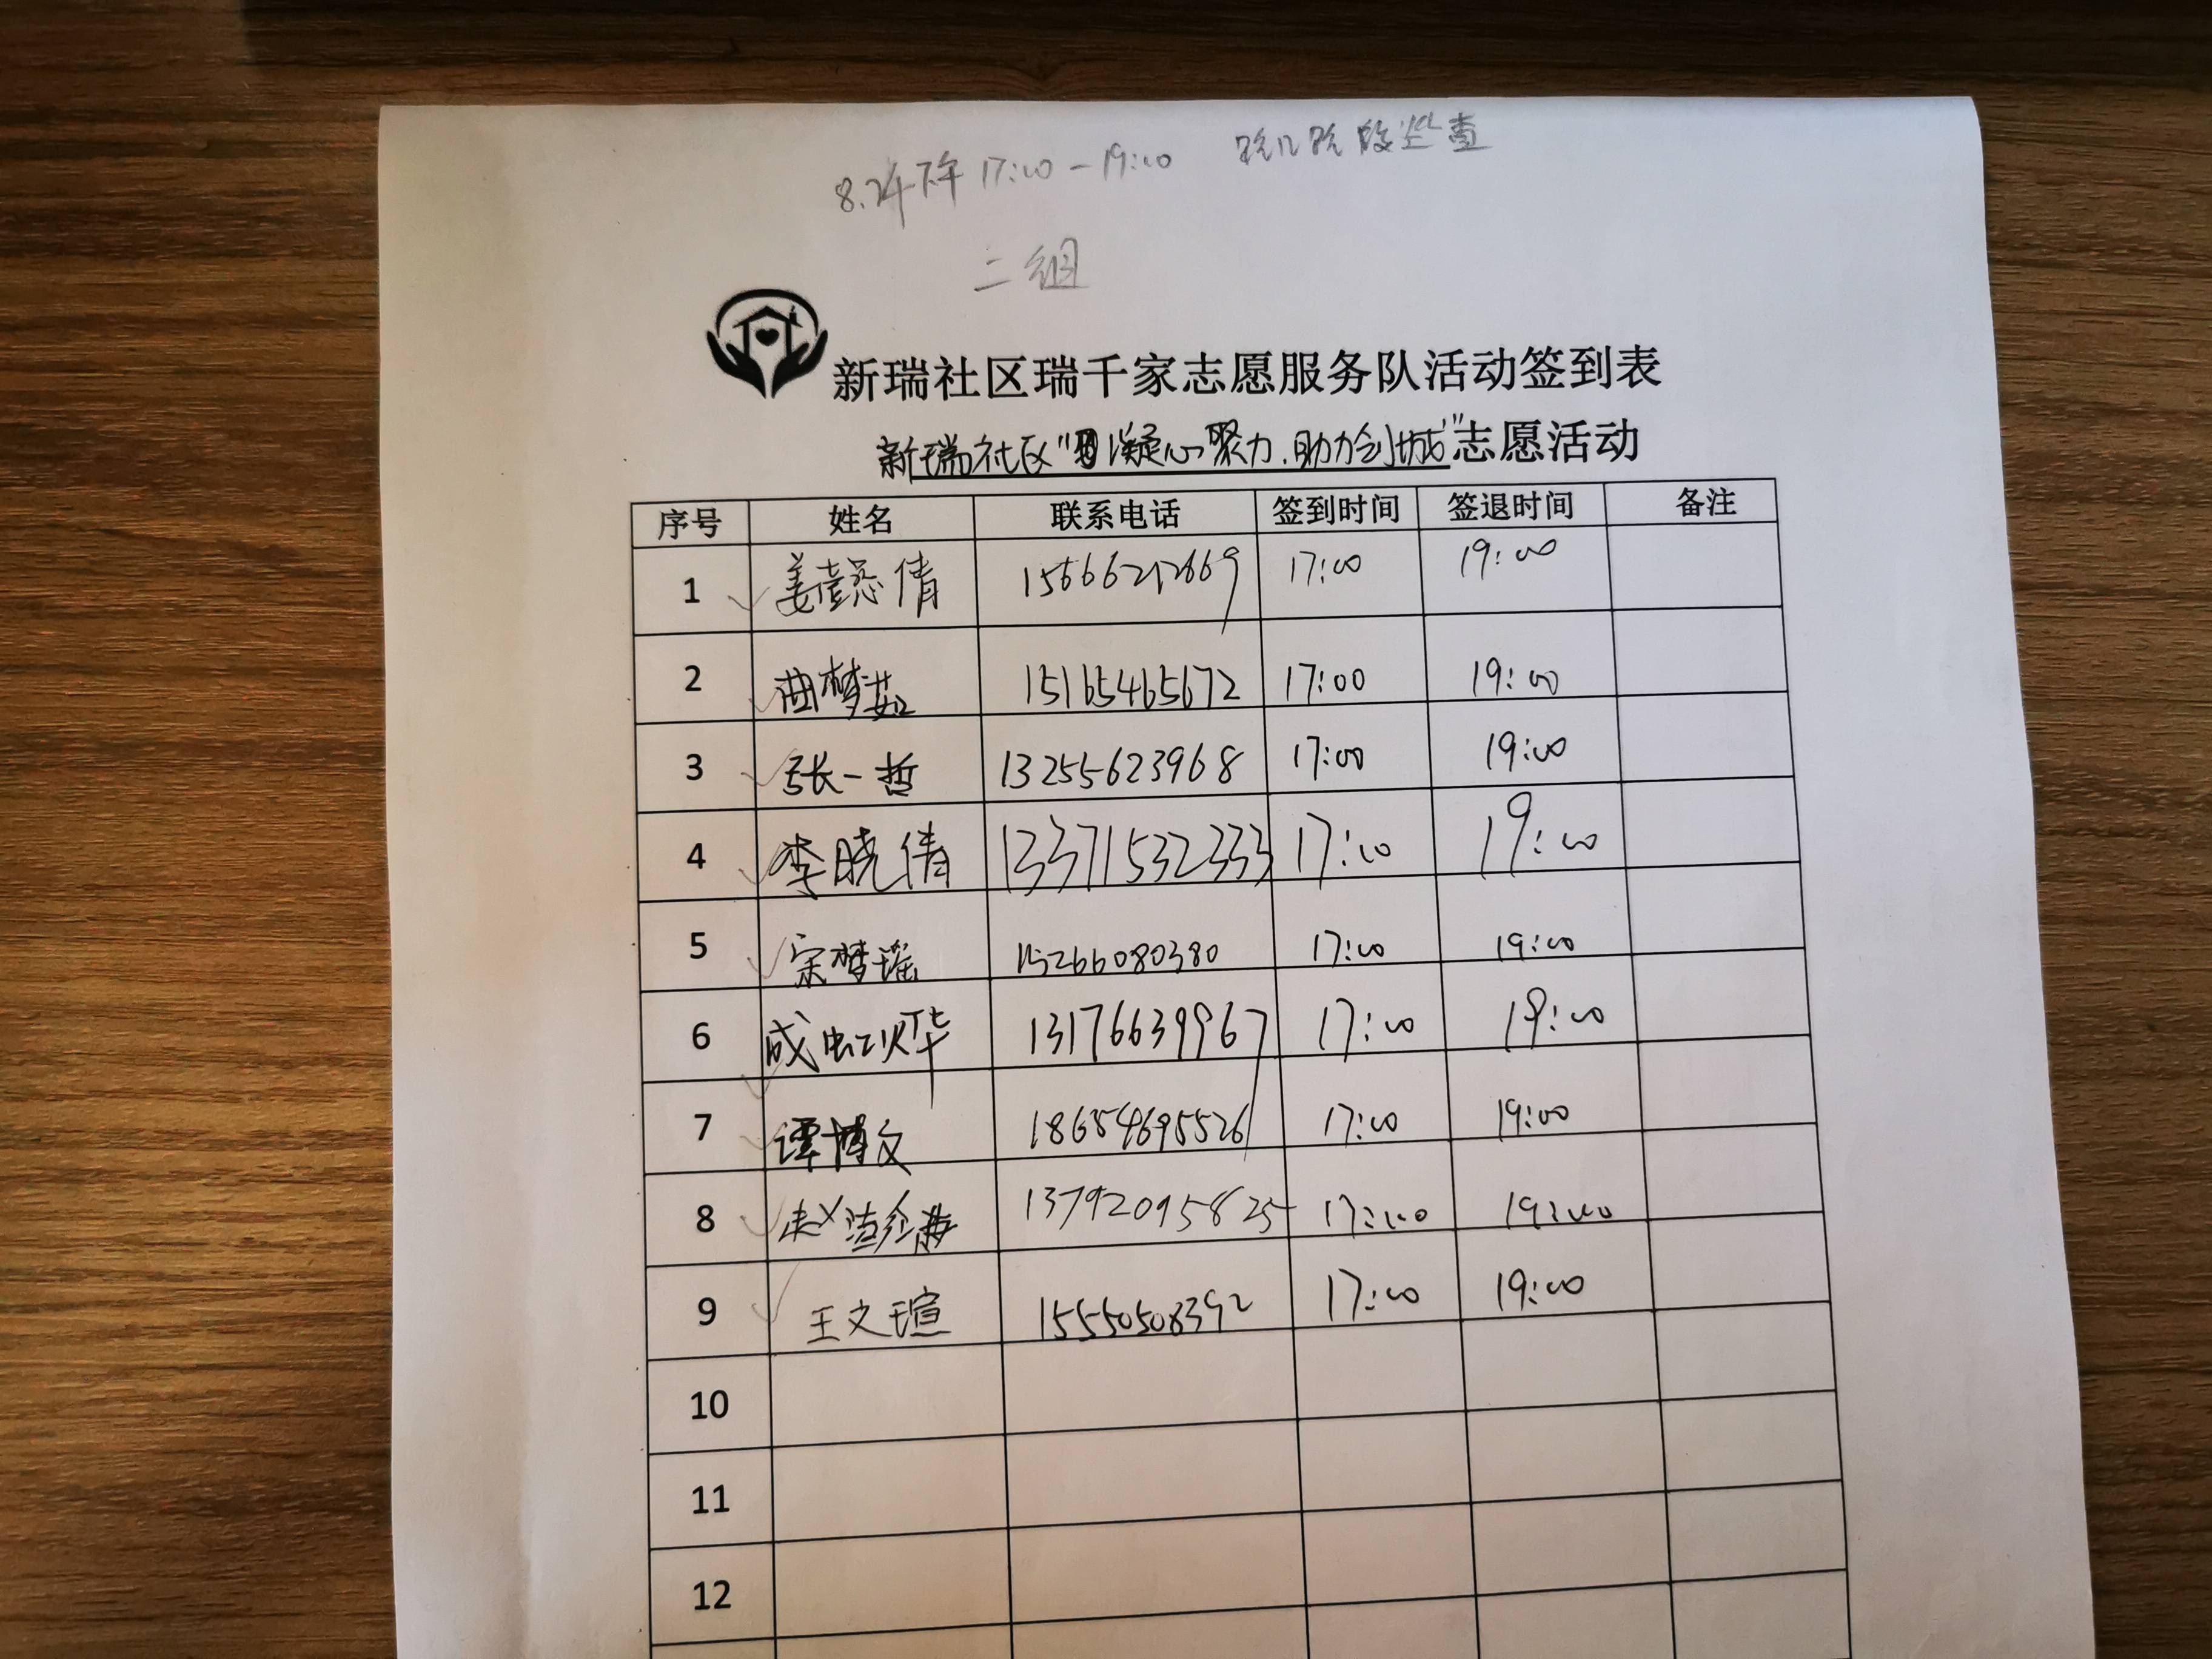 8.24下午 17:00-19:00 路段巡查
二组
新瑞社区瑞千家志愿服务队活动签到表
新瑞社区"凝心聚力.助力创城"志愿活动
序号 姓名 联系电话 签到时间 签退时间 备注
1 姜懿倩 15666212669 17:00 19:00
2 曲梦茹 15165465672 17:00 19:00
3 张一哲 13255623968 17:00 19:00
4 李晓倩 13371532333 17:00 19:00
5 宗梦瑶 15266080380 17:00 19:00
6 成虹烨 13176639967 17:00 19:00
7 谭博文 18654695526 17:00 19:00
8 赵 13792095825 17:00 19:00
9 王文瑄 15550508392 17:00 19:00
10
11
12